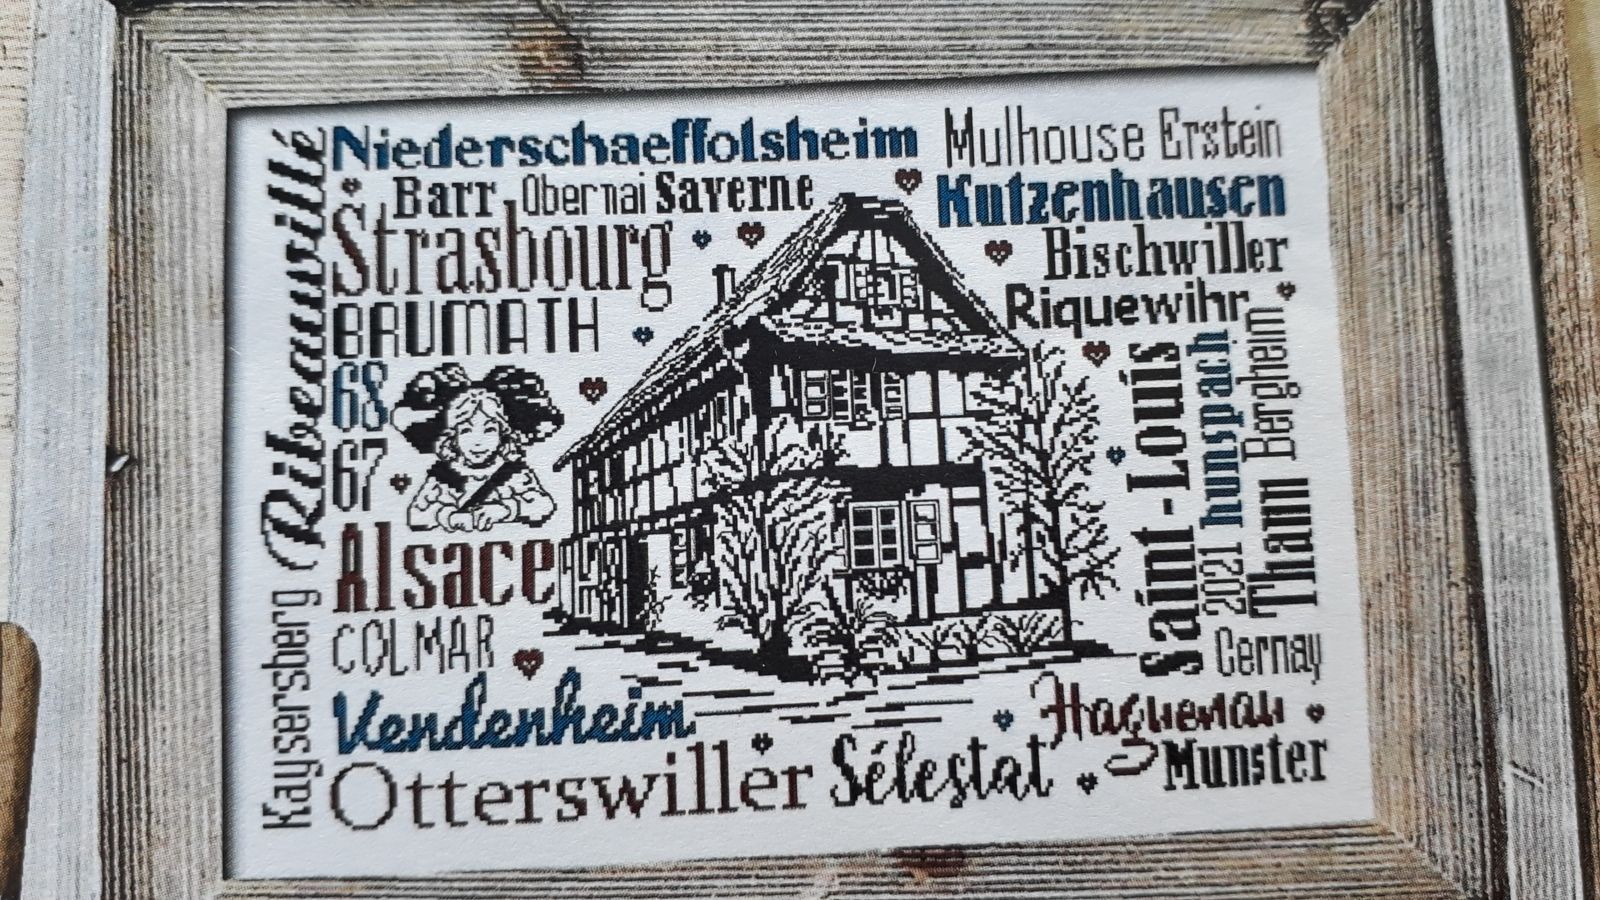 Niederschaeffolsheim
Mulhouse Erstein
Barr Obernai Saverne
Kutzenhausen
Strasbourg
Bischwiller
BRUMATH
Riquewihr
68
67
Alsace
COLMAR
Vendenheim
Otterswiller
Sélestat
Haguenau
Munster
Cernay
Kaysersberg Ribeauvillé
Saint-Louis
2021 hunspach
Thann Bergheim